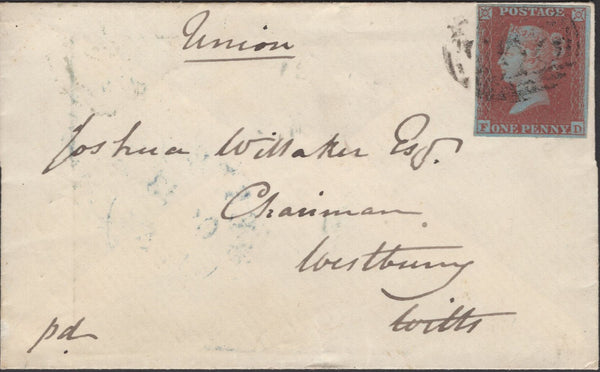 Union
POSTAGE
F ONE PENNY D
Joshua Wittaker Esq.
Chairman
Westbury
Wilts
pd